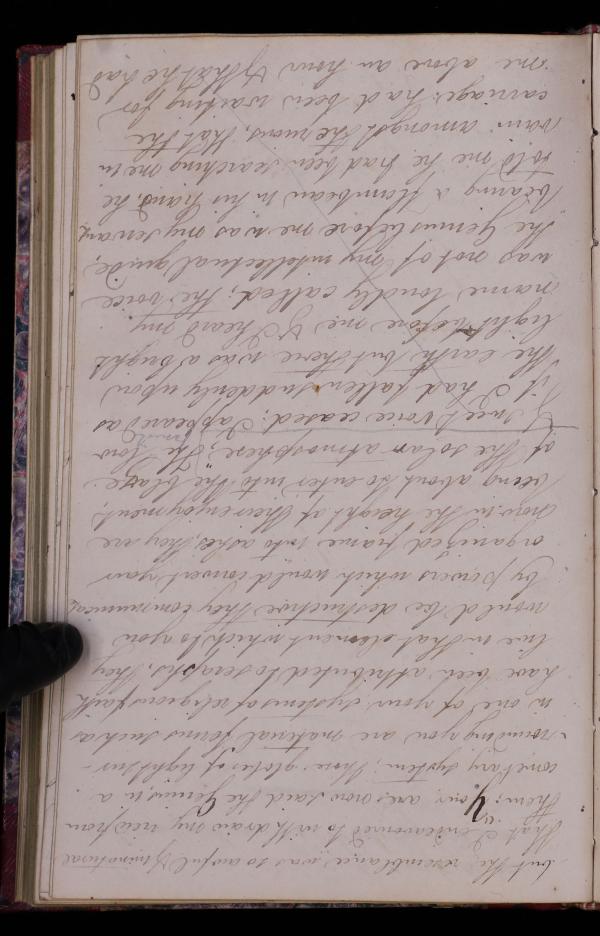 but the resemblance was so awful & unnatural
that I endeavoured to withdraw my view from
them; "You are, now said the Genius, in a
cometary system; those globes of light sur-
-rounding you are material forms such as
in one of your systems of religious faith
have been attributed to seraphs, they
live in that element which to you
would be destructive they communicate
by powers which would convert your
organized frame into ashes; they are
now in the height of their enjoyment
being about to enter into the blaze
of the solar atmosphere," The low
& sweet voice ceased; I appeared as
if I had fallen suddenly upon
the earth, but there was a bright
light before me & I heard my
name loudly called; the voice
was not of my intellectual guide,
the Genius before me was my servant
bearing a flambeau in his hand, he
told me he had been searching me in
vain amongst the ruins, that the
carriage had been waiting for
me above an hour & that he had